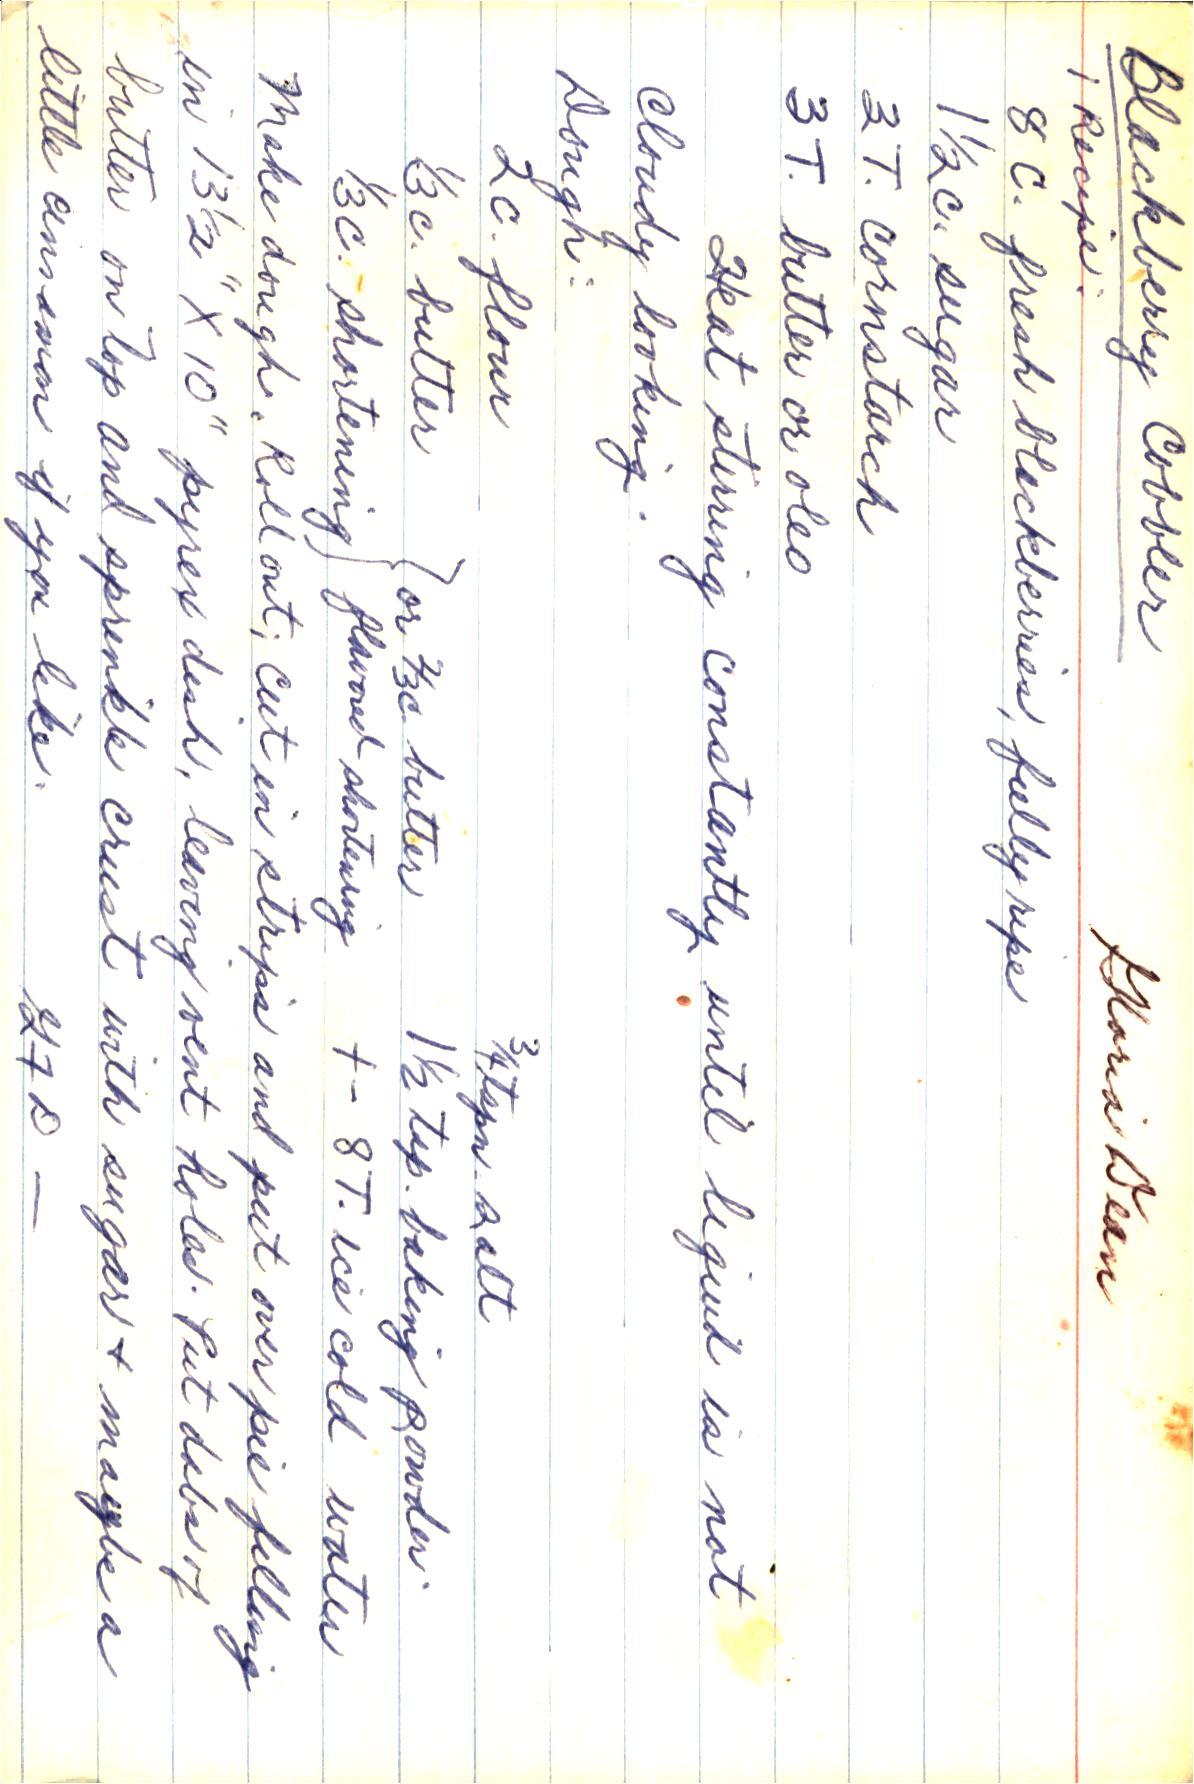 Blackberry Cobbler Gloria Dean
1 Recipe:
8 C. fresh blackberries, fully ripe
1½ c. sugar
3 T. cornstarch
3 T. butter or oleo
Heat stirring constantly until liquid is not
cloudy looking.
Dough:
2 c. flour ¾ tspn. salt
⅓ c. butter } or ⅔ c. butter 1½ tsp. baking powder
⅓ c. shortening } flavored shortening + - 8 T. ice cold water
Make dough. Roll out; cut in strips and put over pie filling
in 13½" X 10" pyrex dish, leaving vent holes. Put dabs of
butter on top and sprinkle crust with sugar + maybe a
little cinnamon if you like.